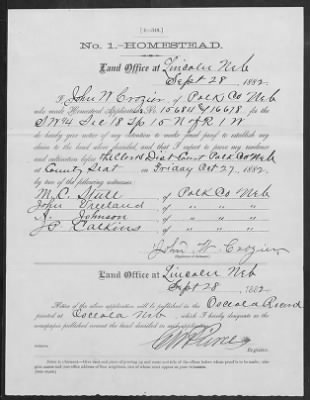 [4-348.]
No. 1.-HOMESTEAD.
Land Office at Lincoln Neb
Sept 28, 1882.
I, John W Crozier, of Polk Co Neb
who made Homestead Application No. 15684 & 16678 for the
SW 4 Sec 18 Tp 15 N of R 1 W
do hereby give notice of my intention to make final proof to establish my
claim to the land above described, and that I expect to prove my residence
and cultivation before the Clerk Dist Court Polk Co Neb
at County Seat on Friday Oct 27, 1882,
by two of the following witnesses:
M. C. Stull, of Polk Co Neb
John Vreeland, of " "
A. Johnson, of " "
J P Calkins, of " "
John W. Crozier
Land Office at Lincoln Neb
Sept 28, 1882
Notice of the above application will be published in the Osceola Record
printed at Osceola Neb, which I hereby designate as the
newspaper published nearest the land described in said application.
Register.